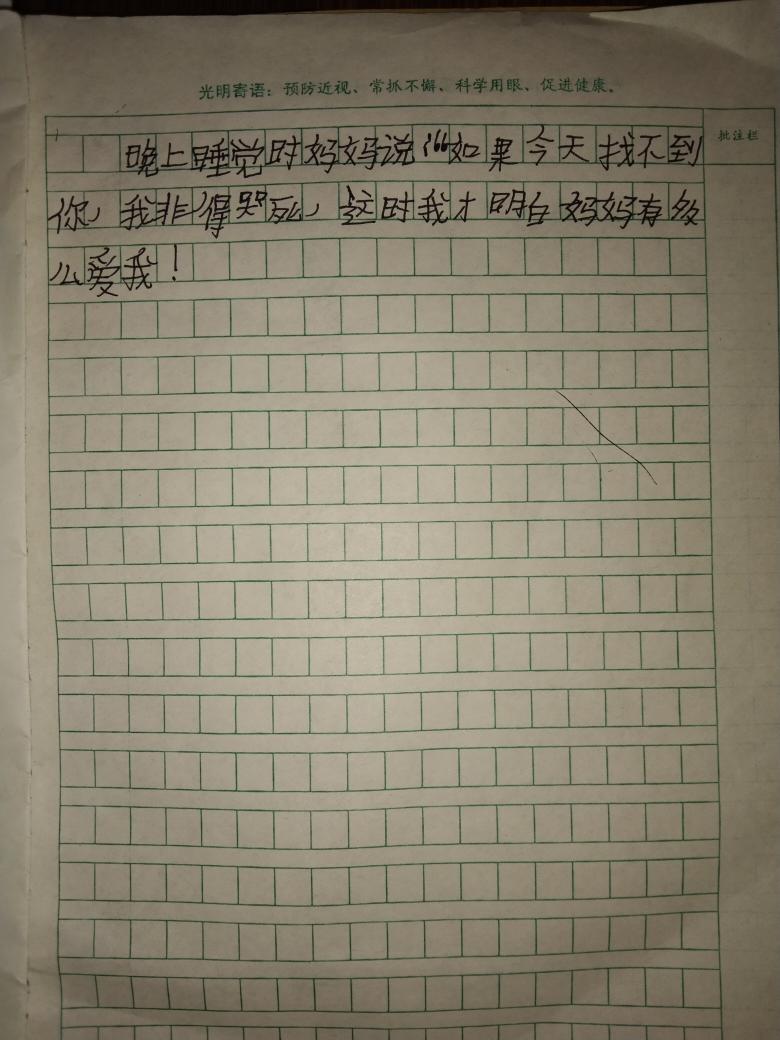 光明寄语：预防近视、常抓不懈、科学用眼、促进健康。
批注栏
晚上睡觉时妈妈说“如果今天找不到
你，我非得哭死，这时我才明白妈妈有多
么爱我！